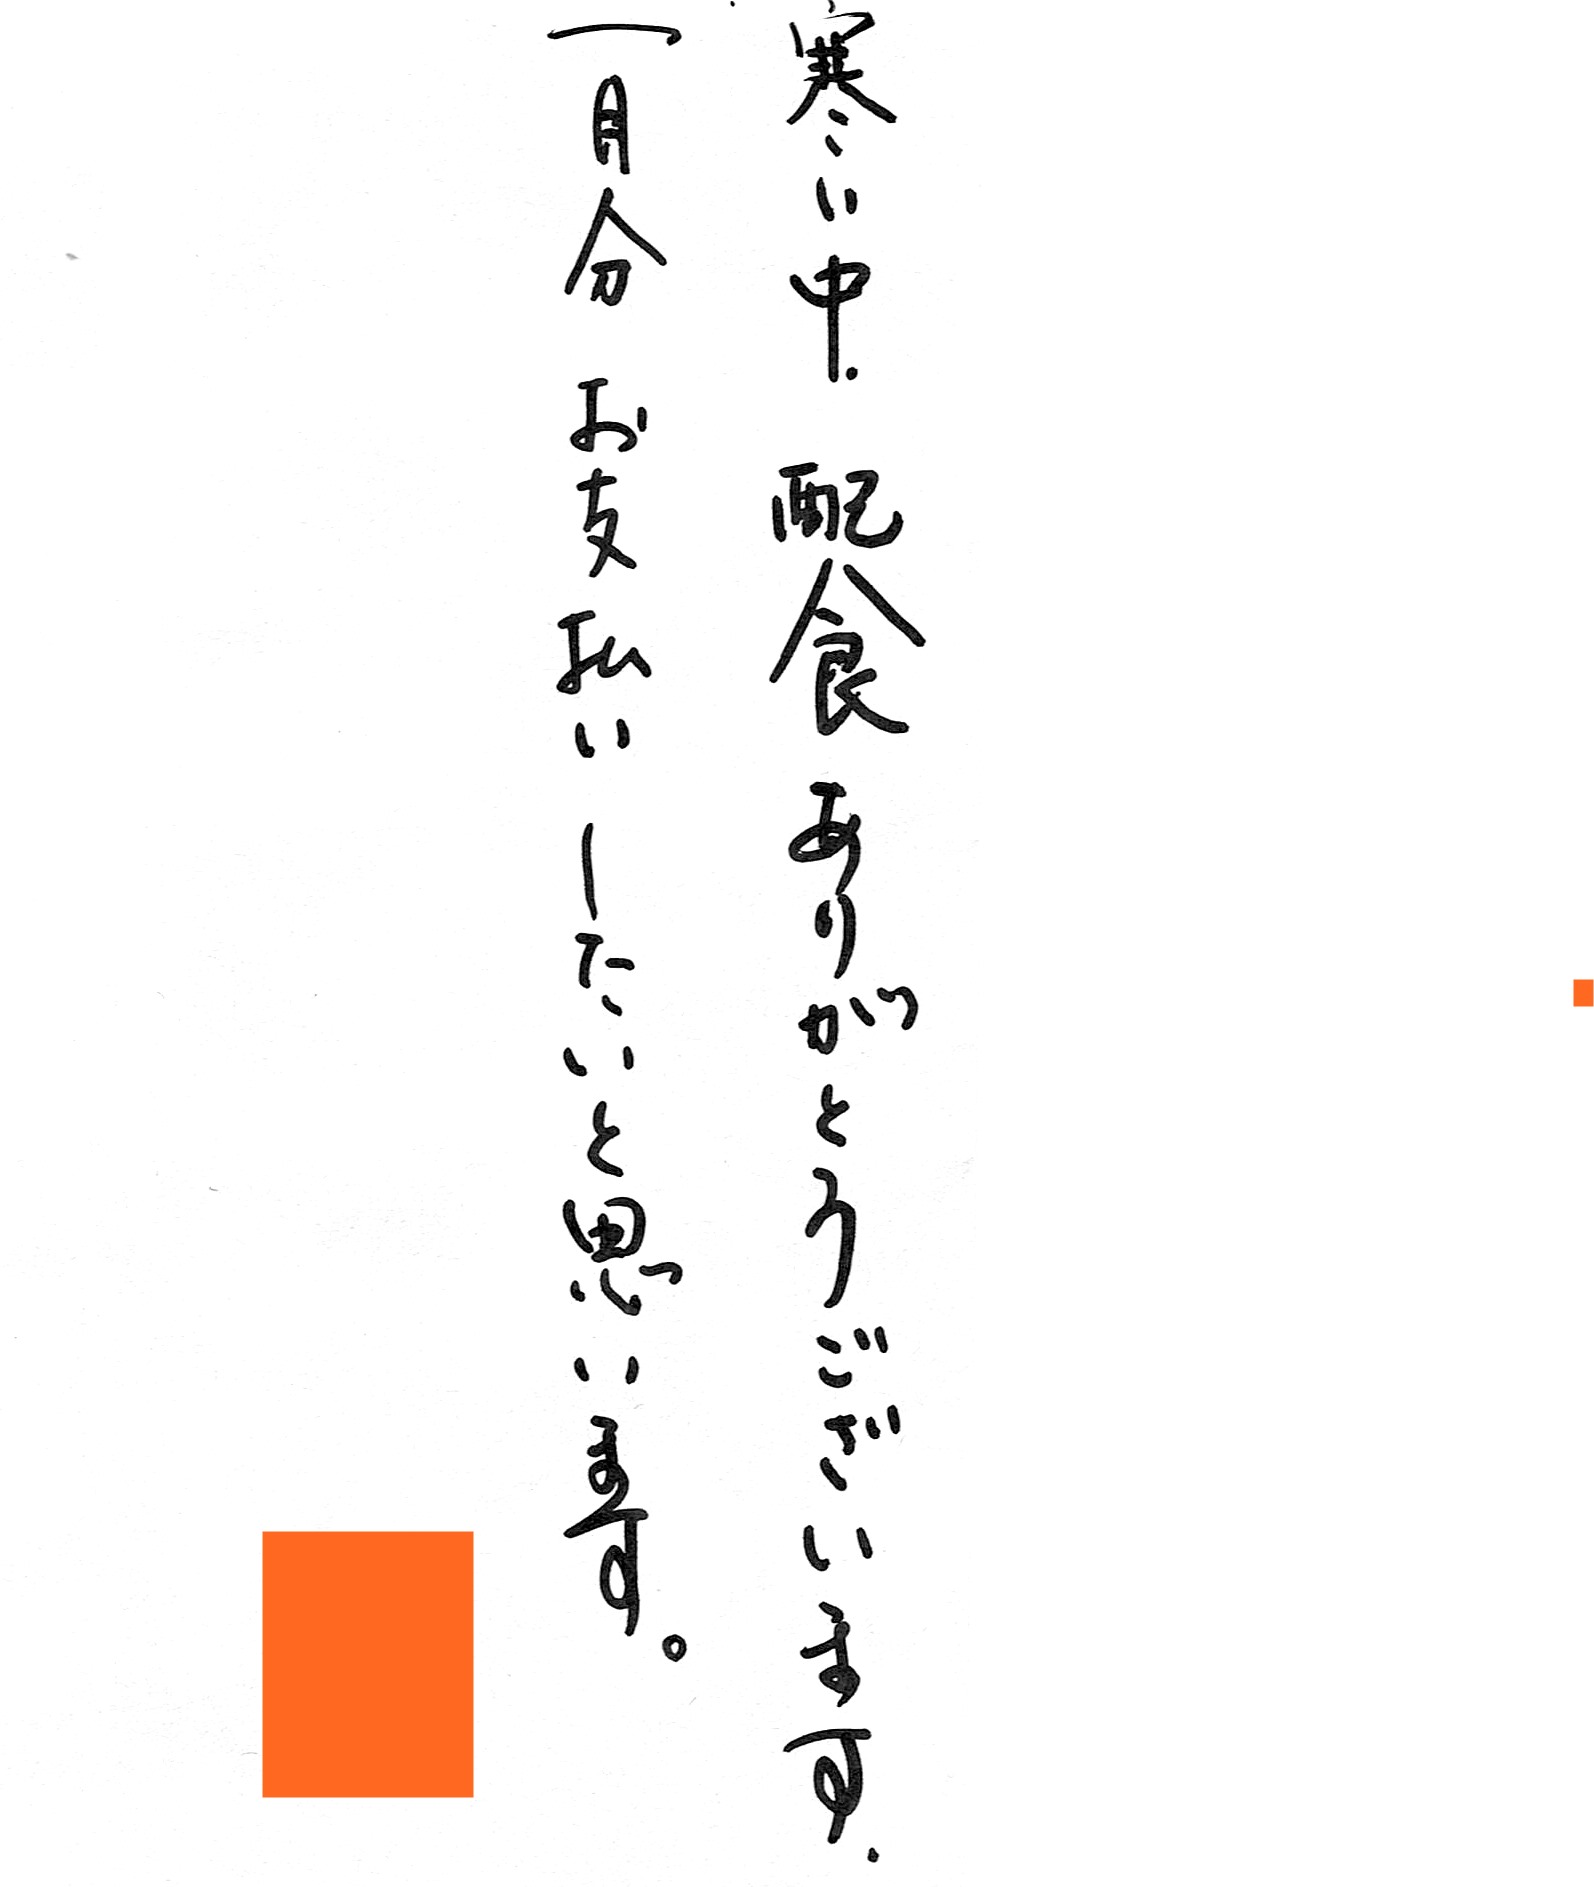 寒い中.配食ありがとうございます.
一月分お支払いしたいと思います。